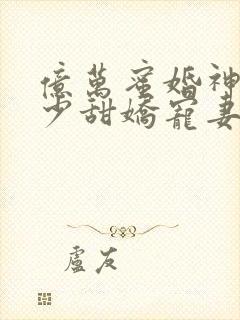 億萬蜜婚神
少甜嬌寵妻
盧友